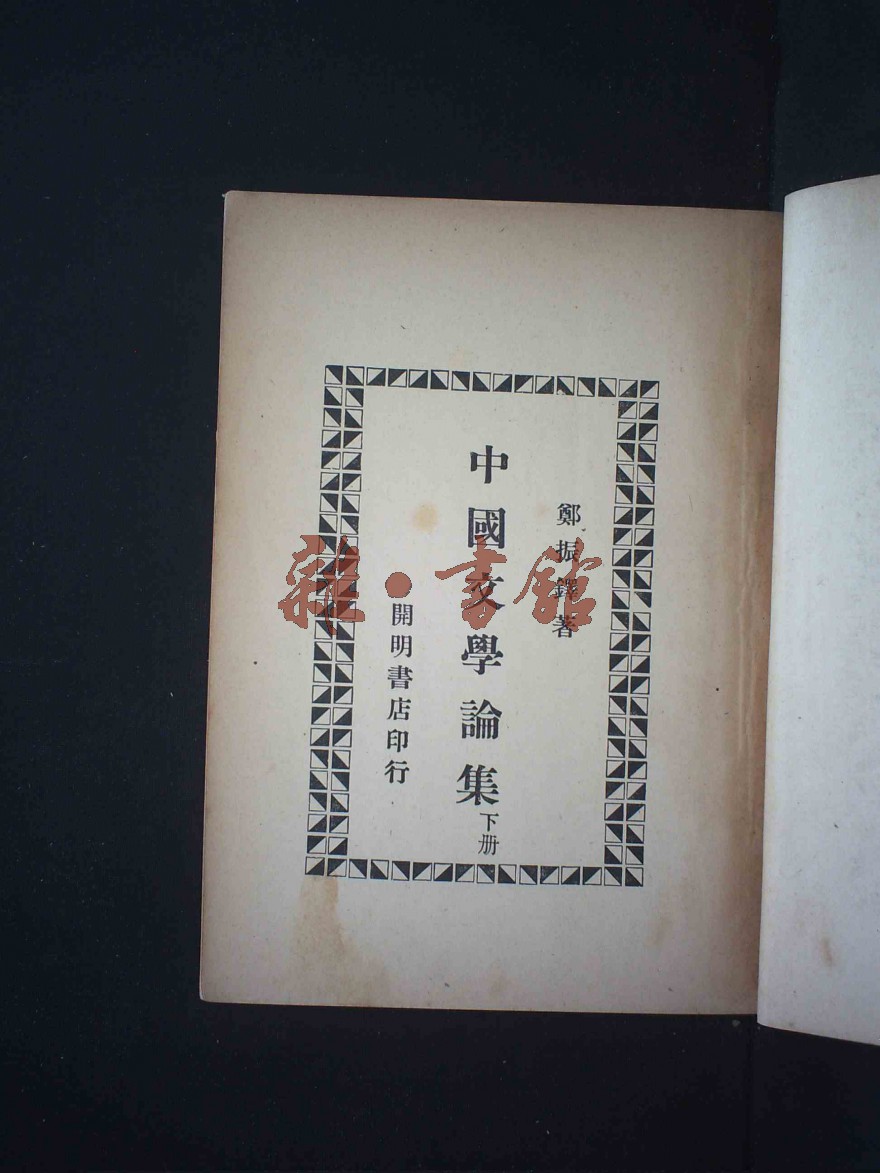 鄭振鐸著
中國文學論集下册
開明書店印行
雜·書館